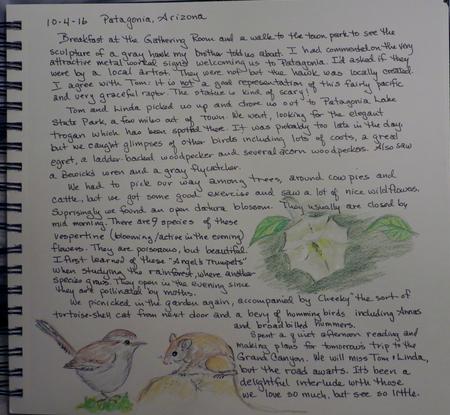 10-4-16 Patagonia, Arizona
Breakfast at the Gathering Room and a walk to the town park to see the
sculpture of a gray hawk my brother told us about. I had commented on the very
attractive metal worked signs welcoming us to Patagonia. I'd asked if they
were by a local artist. They were not but the hawk was locally created.
I agree with Tom. It is not a good representation of this fairly pacific
and very graceful raptor. The statue is kind of scary!
Tom and Linda picked us up and drove us out to Patagonia Lake
State Park, a few miles out of town. We went, looking for the elegant
trogan which had been spotted there. It was probably too late in the day,
but we caught glimpses of other birds including lots of coots, a great
egret, a ladder-backed woodpecker and several acorn woodpeckers. Also saw
a Bewick's wren and a gray flycatcher.
We had to pick our way among trees, around cow pies and
cattle, but we got some good exercise and saw a lot of nice wildflowers.
Suprisingly we found an open datura blossom. They usually are closed by
mid morning. There are 9 species of these
vespertine (blooming/active in the evening)
flowers. They are poisonous, but beautiful.
I first learned of these "Angel's Trumpets"
when studying the rainforest, where another
species grows. They open in the evening since
they are pollinated by moths.
We picnicked in the garden again, accompanied by "Cheeky" the sort-of
tortoise-shell cat from next door and a bevy of humming birds including Annas
and broadbilled hummers.
Spent a quiet afternoon reading and
making plans for tomorrow's trip to the
Grand Canyon. We will miss Tom & Linda,
but the road awaits. It's been a
delightful interlude with those
we love so much, but see so little.